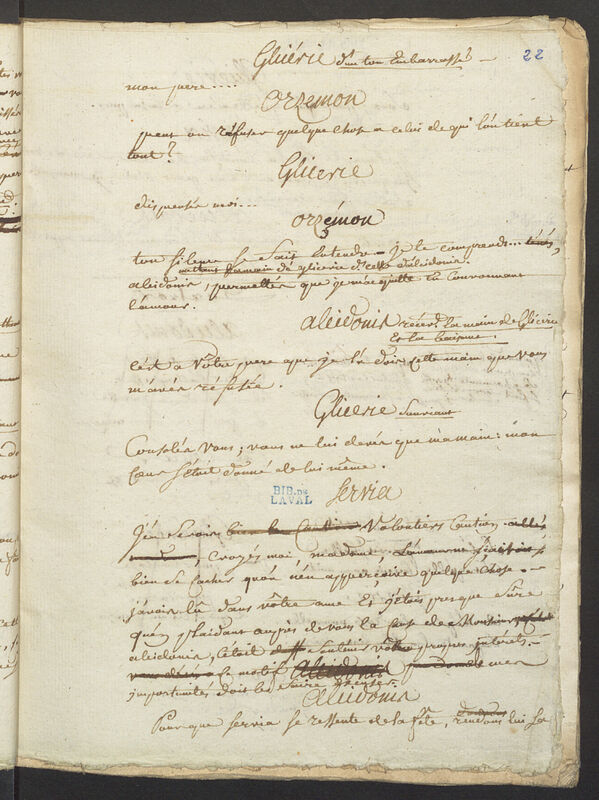 22
Glicérie d'un ton Embarrassé
mon pere....
orzemon
peut on refuser quelque chose a celui de qui l'on tient
tout?
Glicerie
dispensés moi...
orzémon
ton silence se fait entendre - je le comprends... tenés,
mettant la main de glicerie ds celle d'alcidonis.
alcidonis, permettés que je m'acquitte En Couronnant
l'amour.
alcidonis recevt la main de Glicérie
Et la baisant.
c'est a votre pere que je la dois cette main que vous
m'avés refusée.
Glicerie souriant
Consolés vous; vous ne lui devés que ma main: mon
Cœur s'étoit donné de lui même.
BIB. DE
LAVAL
servia
j'en serois bien la Caution volontiers Caution
, croyés moi madame. L'amour ne
bien se cacher qu'on n'en apperçoive quelque chose.
j'avois lû dans vôtre ame Et j'étois presque sure
qu'en plaidant auprès de vous la Cause de Monsieur
alcidonis, c'etoit soutenir vôtre propre intérêt
Ce motif alcidonis mes
importunités doit les faire
alcidonis
Pour que servia se ressente de la fête, rendons lui sa